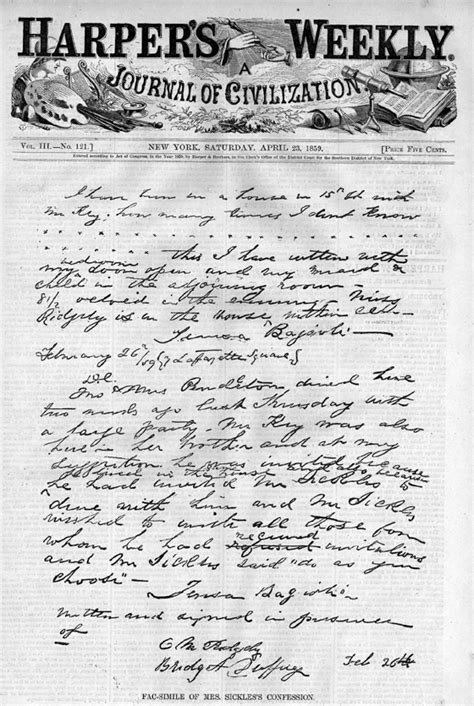 HARPER'S WEEKLY.
A
JOURNAL OF CIVILIZATION
VOL. III.—No. 121.] NEW YORK, SATURDAY, APRIL 23, 1859. [PRICE FIVE CENTS.
Entered according to Act of Congress, in the Year 1859, by Harper & Brothers, in the Clerk's Office of the District Court for the Southern District of New York.
I have been in a house in 15th St with
Mr Key. how many times I dont know
this I have written with
my door open and my maid &
child in the adjoining room -
8½ oclock in the evening Miss
Ridgely is in the house within call -
Teresa Bagioli -
February 26th /59 Lafayette Square
D.C.
Mr & Mrs Pendleton dined here
two weeks ago last Thursday with
a large party. Mr Key was also
here - her brother and at my
suggestion he was invited because
he lived in the house & also because
he had invited Mr Sickles to
dine with him and Mr Sickles
wished to invite all those from
whom he had received invitations
and Mr Sickles said "do as you
choose" -
Teresa Bagioli -
Written and signed in presence
of
C M Ridgely
Bridget Duffy Feb 26th
FAC-SIMILE OF MRS. SICKLES'S CONFESSION.